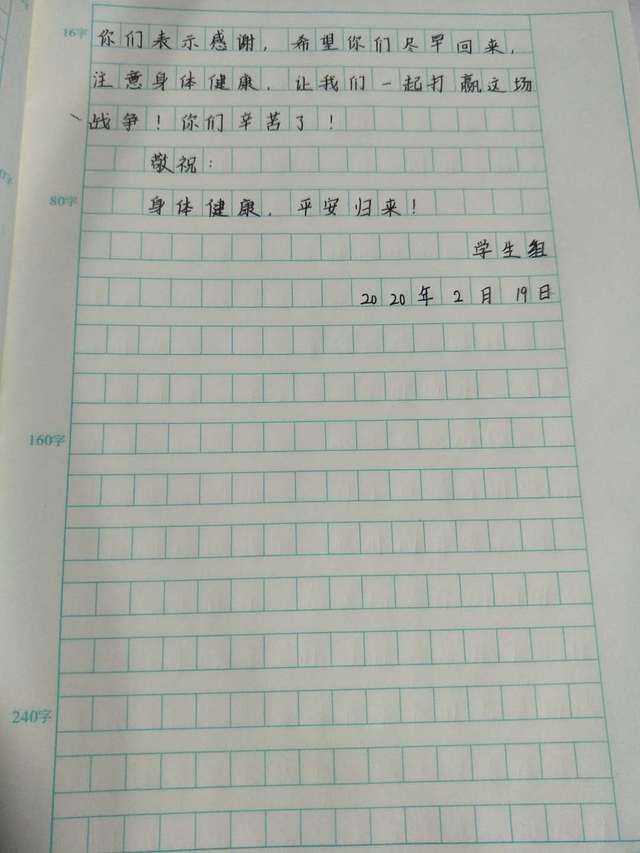 16字
你们表示感谢，希望你们尽早回来，
注意身体健康，让我们一起打赢这场
战争！你们辛苦了！
敬祝：
80字
身体健康，平安归来！
学生组
2020年2月19日
160字
240字